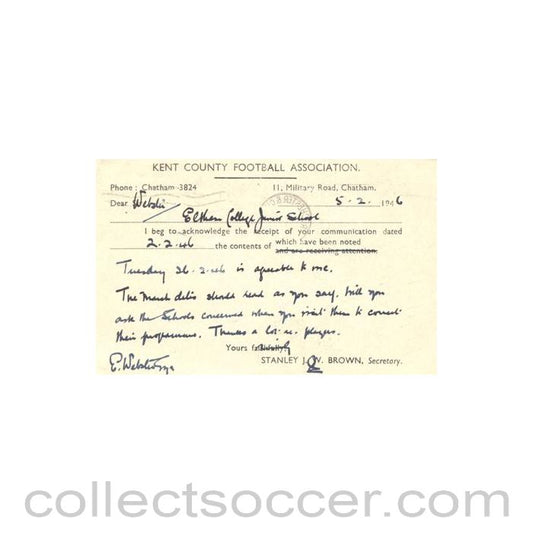 KENT COUNTY FOOTBALL ASSOCIATION.
Phone: Chatham 3824 11, Military Road, Chatham.
Dear Webster 5. 2. 1946
Eltham College Junior School
I beg to acknowledge the receipt of your communication dated
2.2.46 the contents of which have been noted
and are receiving attention.
Tuesday 26.2.46 is agreeable to me.
The March dates should read as you say. Will you
ask the Schools concerned when you visit them to correct
their programmes. Thanks a lot re. players.
Yours
STANLEY J. W. BROWN, Secretary.
E. Webster
collectsoccer.com